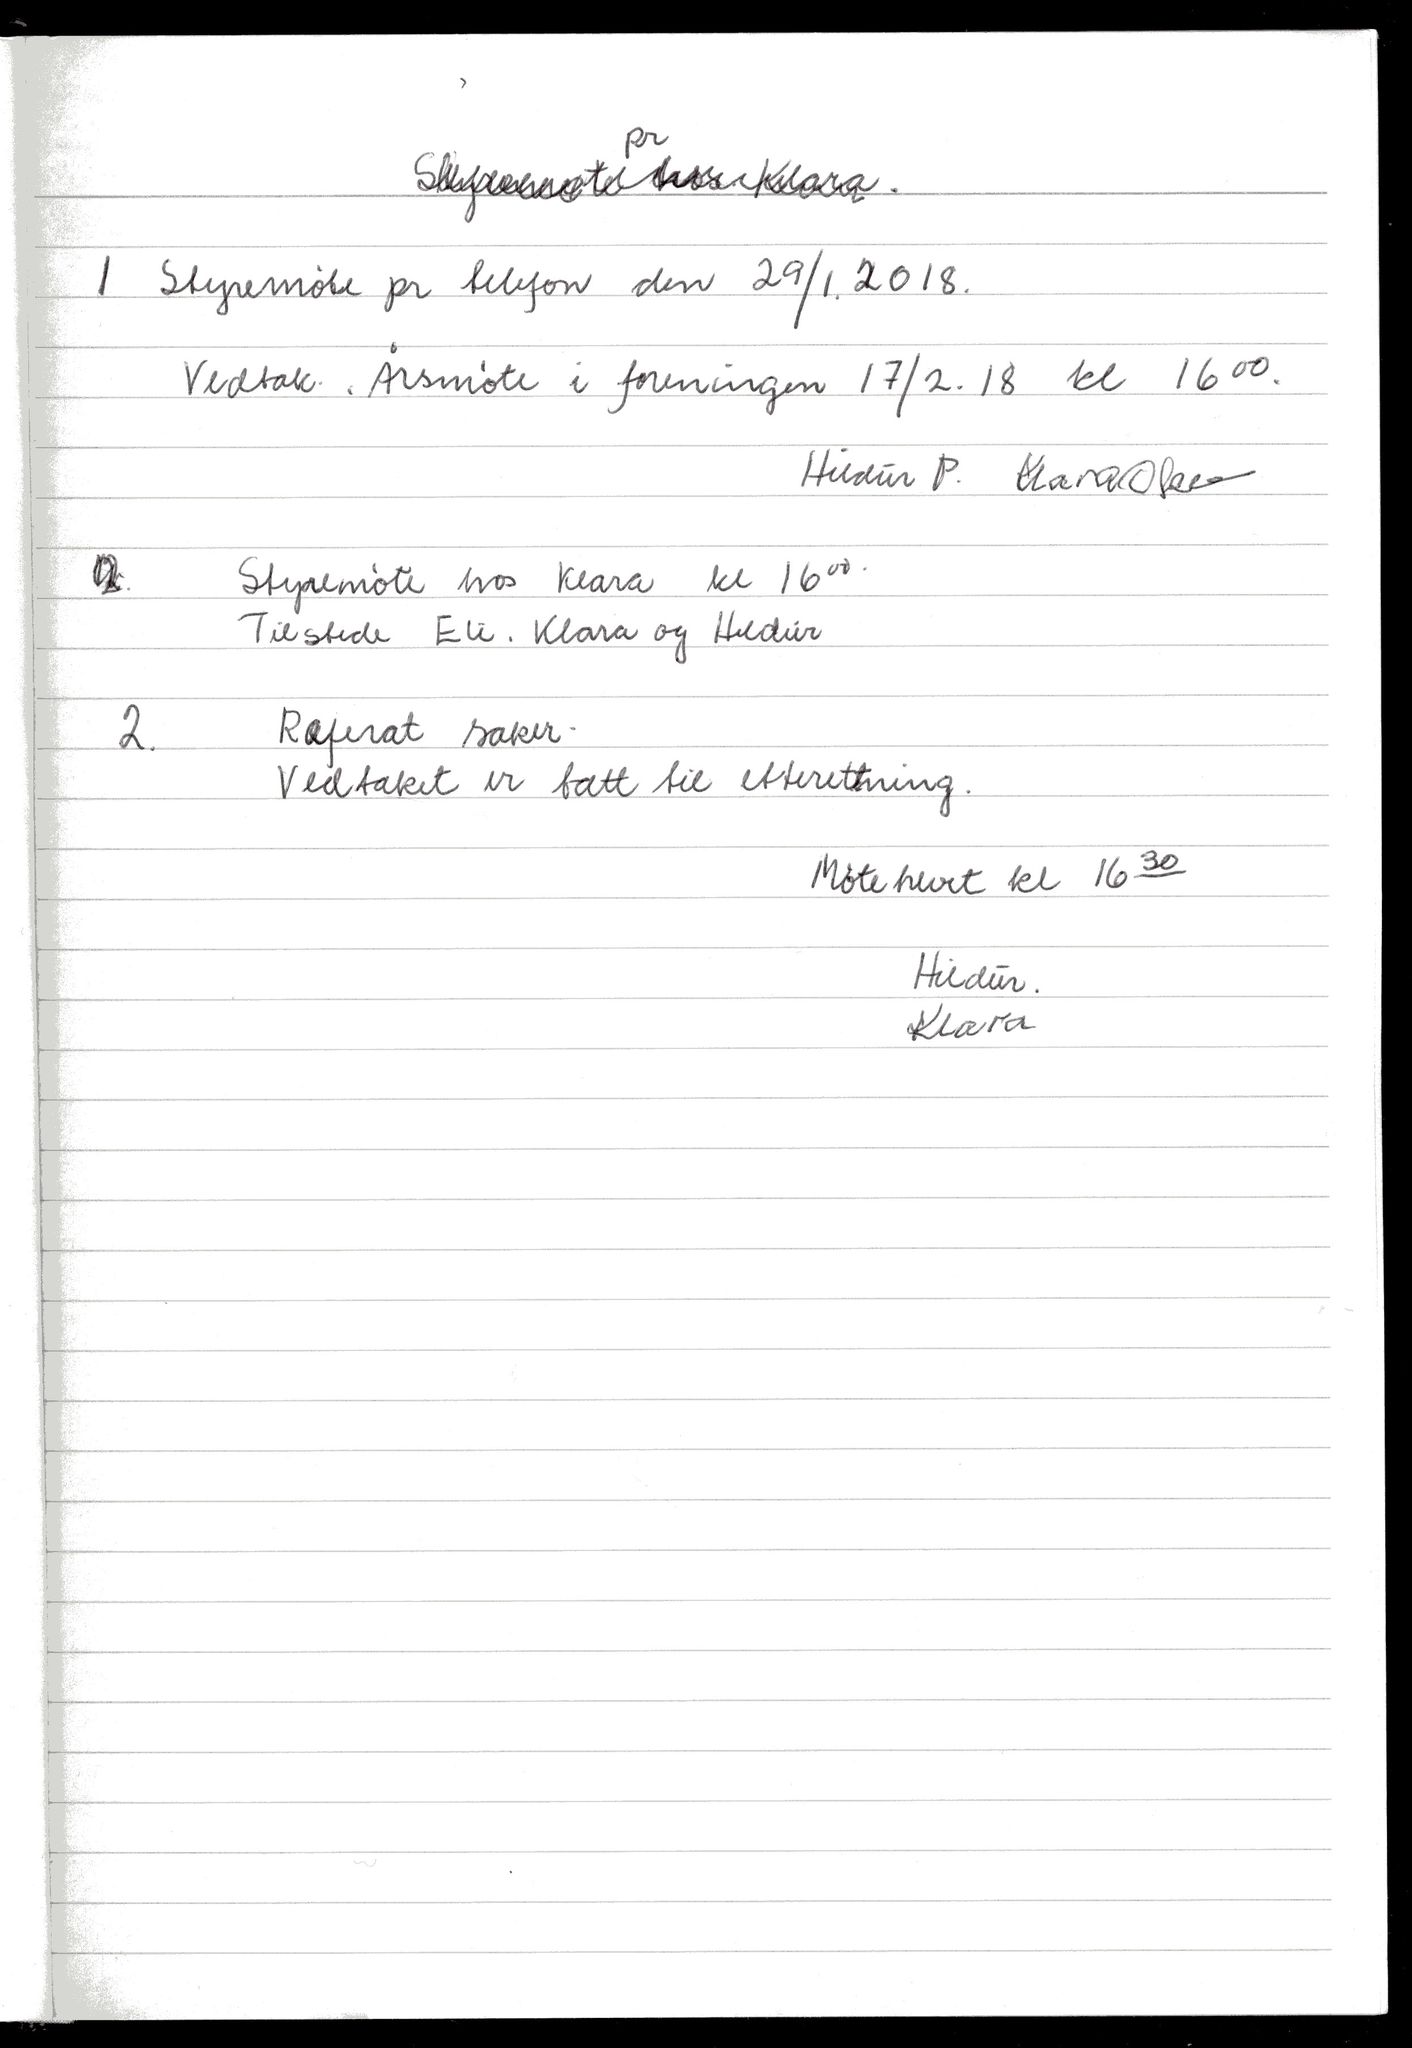 pr
Styremøte hos Klara.
1 Styremøte pr telefon den 29/1. 2018.
Vedtak. Årsmøte i foreningen 17/2. 18 kl 16 00.
Hildur P. Klara Olsen
2. Styremøte hos Klara kl 16 00.
Tilstede Eli. Klara og Hildur
2. Referat saker.
Vedtaket er tatt til etterettning.
Møte hevet kl 16 30
Hildur.
Klara